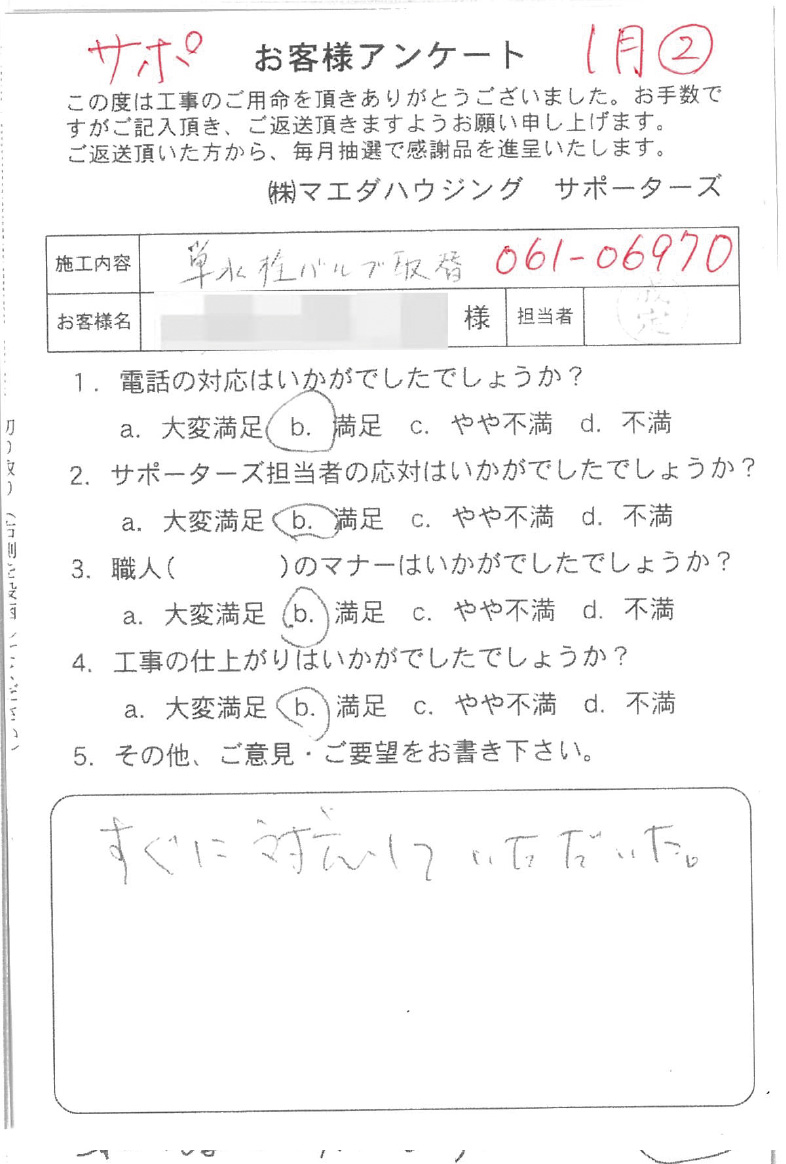 サポ お客様アンケート 1月②
この度は工事のご用命を頂きありがとうございました。お手数で
すがご記入頂き、ご返送頂きますようお願い申し上げます。
ご返送頂いた方から、毎月抽選で感謝品を進呈いたします。
㈱マエダハウジング サポーターズ
施工内容 単水栓バルブ取替 061-06970
お客様名 様 担当者
1. 電話の対応はいかがでしたでしょうか？
a. 大変満足 b. 満足 c. やや不満 d. 不満
2. サポーターズ担当者の応対はいかがでしたでしょうか？
a. 大変満足 b. 満足 c. やや不満 d. 不満
3. 職人( )のマナーはいかがでしたでしょうか？
a. 大変満足 b. 満足 c. やや不満 d. 不満
4. 工事の仕上がりはいかがでしたでしょうか？
a. 大変満足 b. 満足 c. やや不満 d. 不満
5. その他、ご意見・ご要望をお書き下さい。
すぐに対応していただいた。